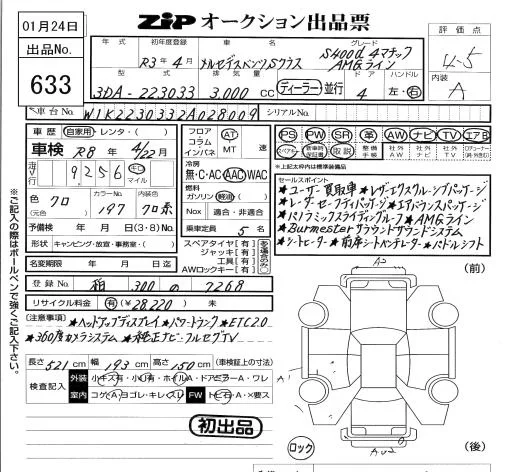 01月24日
出品No.
633
ZIP オークション出品票
評価点
4.5
内装
A
年式 初年度登録 車名 グレード
R3年4月 メルセデスベンツSクラス S400d 4マチック
AMGライン
型式 排気量 ドア ハンドル
3DA-223033 3,000 CC ディーラー・並行 4 左・右
車台No. W1K2230332A028009 シリアルNo.
車歴 自家用・レンタ・( )
車検 R8年4/22月
走行 9256 キロ マイル
色 クロ (元色) カラーNo. 197 内装色 クロ系
予備検 年 月 日(3・8)No.
形状 キャンピング・放宣・事務室・( )
名変期限 年 月 日迄
フロア コラム インパネ AT MT 速
冷房
無・C・AC・AAC・WAC
燃料
ガソリン・軽油・( )
Nox 適合・非適合
乗車定員 5 名
スペアタイヤ【有】
ジャッキ【有】
工具【有】
AWロックキー【有】
PS PW SR 革 AW ナビ TV エアB
スペアキー 新車時保証書 取説 整備手帳 社外AW 社外ナビ 社外TV
※上記太枠内は標準装備品
セールスポイント
★ユーザー買取車★レザーエクスクルーシブパッケージ
★レザーセーフティパッケージ★エアバランスパッケージ
★パノラミックスライディングルーフ★AMGライン
★Burmesterサラウンドサウンドシステム
★シートヒーター★前席シートベンチレーター★パドルシフト
登録No. 柏 300 の 7268
リサイクル料金 有(¥28,220) 未
(注意事項)★ヘッドアップディスプレイ★パワートランク★ETC2.0
★360度カメラシステム★純正ナビ・フルセグTV
長さ521cm 幅193cm 高さ150cm (車検証上の寸法)
検査記入 外装 小キズ有・小凹有・ホイルA・ドアミラーA・ワレ
室内 コゲA・ヨゴレ・キレ・スレ FW トビ石・A・×要ス
初出品
ロック
(前)
A2
A1
AU2
(後)
※ご記入の際はボールペンで強くご記入下さい。